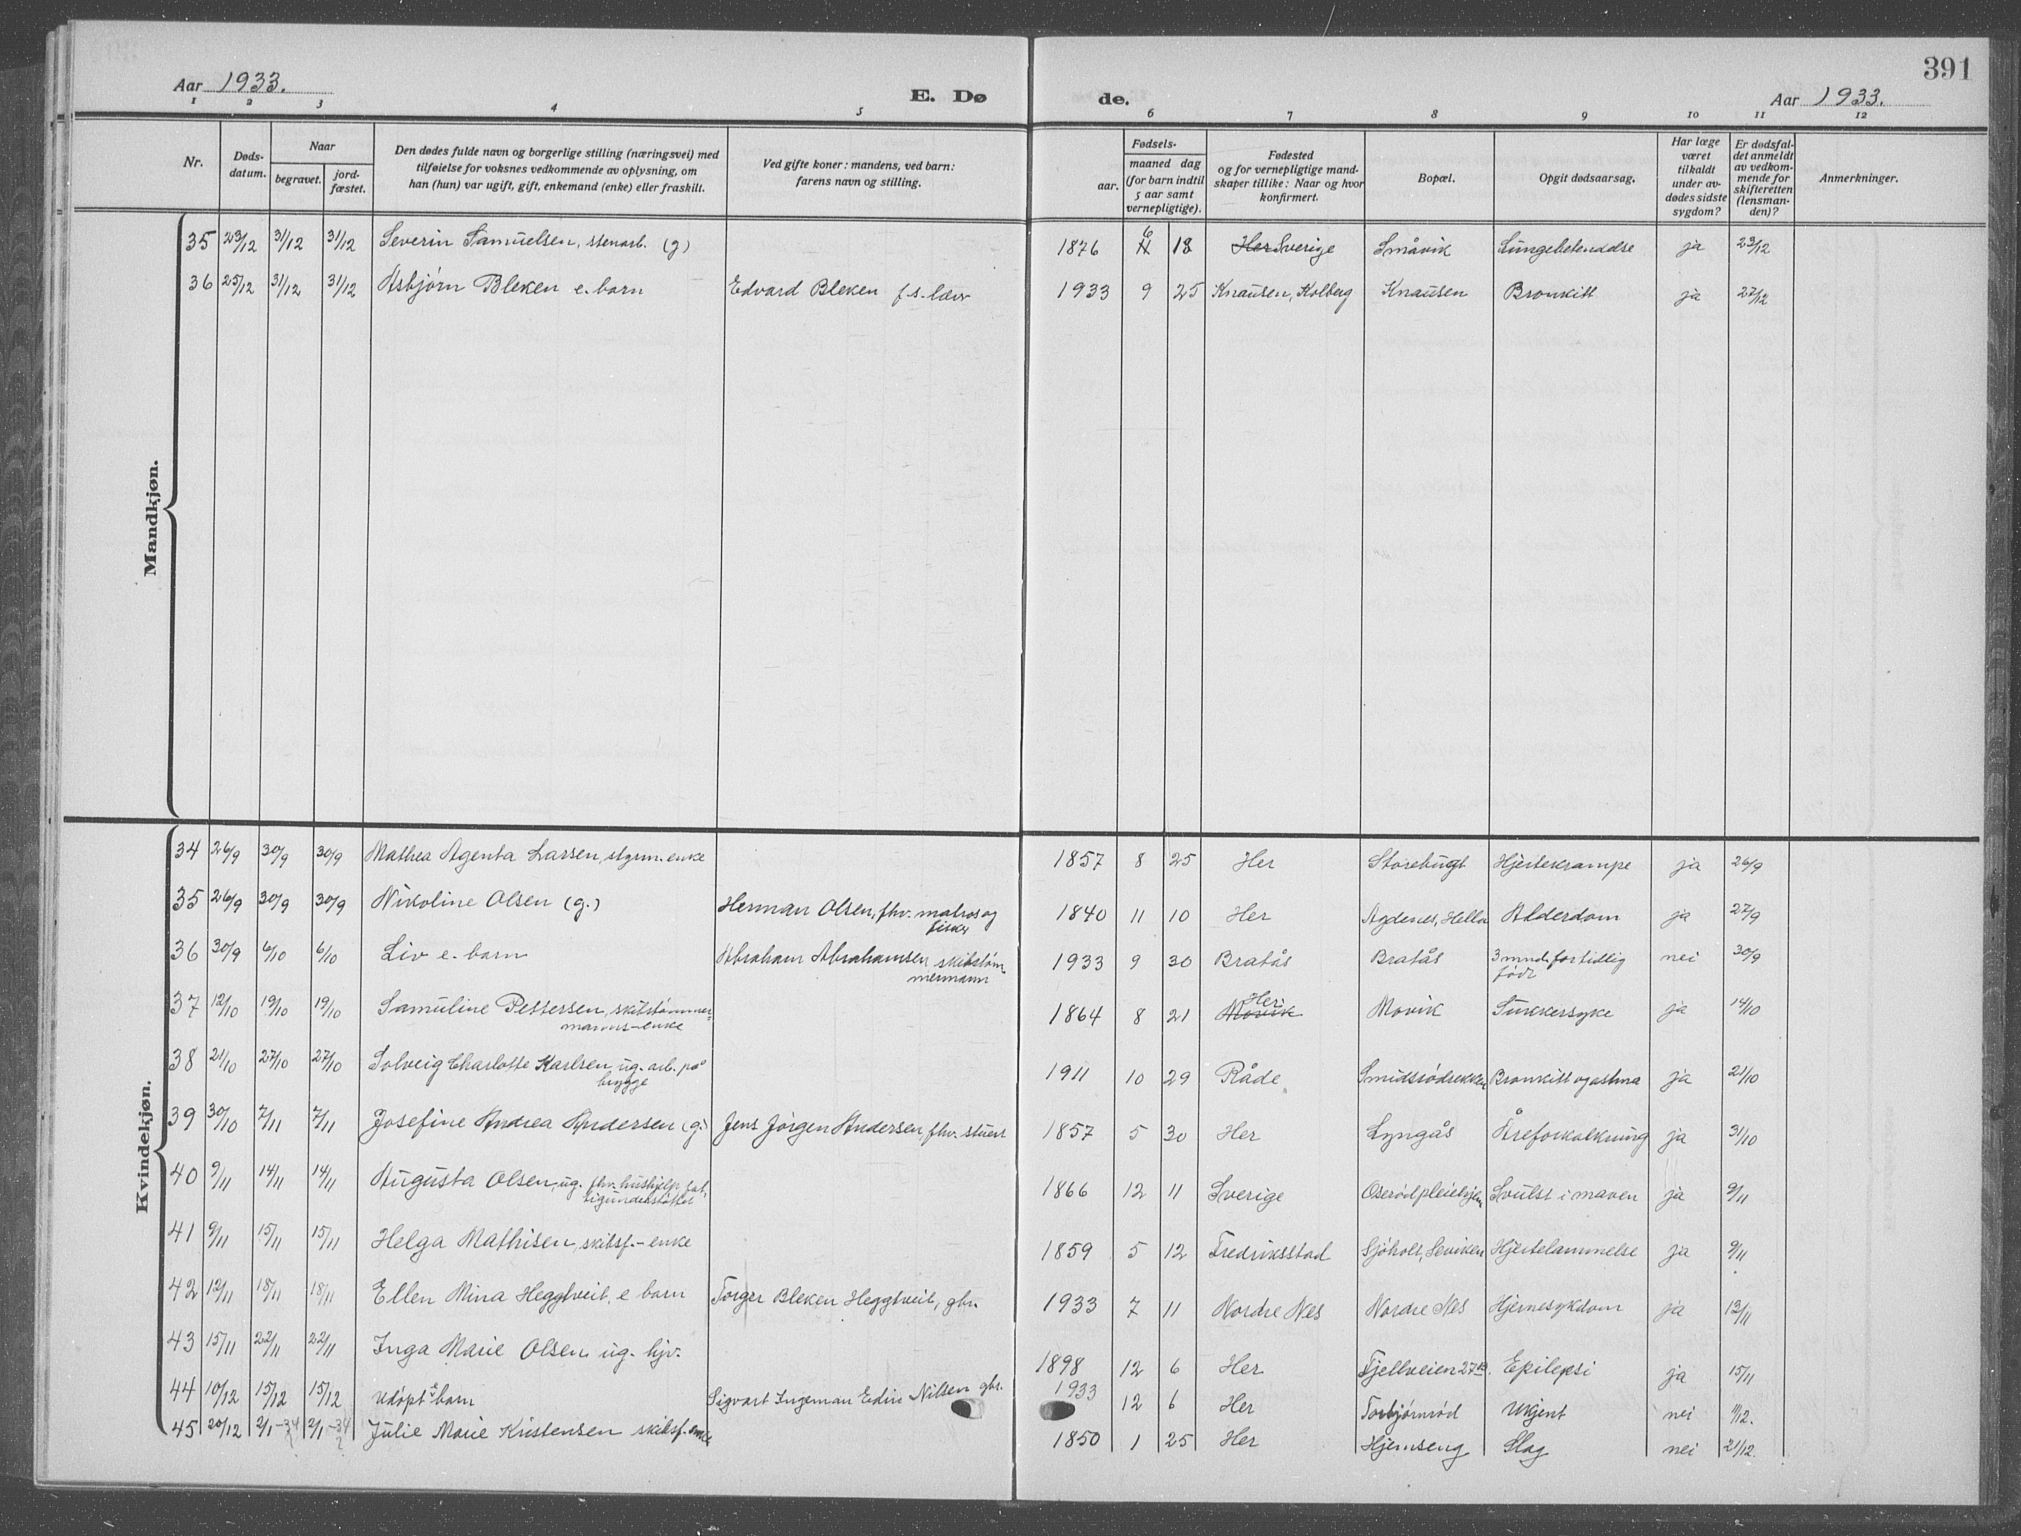 391
Aar 1933. E. Døde. Aar 1933.
1 2 3 4 5 6 7 8 9 10 11 12
Nr. Dødsdatum. Naar begravet. jordfæstet. Den dødes fulde navn og borgerlige stilling (næringsvei) med tilføielse for voksnes vedkommende av oplysning, om han (hun) var ugift, gift, enkemand (enke) eller fraskilt. Ved gifte koner: mandens, ved barn: farens navn og stilling. Fødsels- aar. maaned dag (for barn indtil 5 aar samt vernepligtige). Fødested og for vernepligtige mandskaper tillike: Naar og hvor konfirmert. Bopæl. Opgit dødsaarsag. Har læge været tilkaldt under avdødes sidste sygdom? Er dødsfaldet anmeldt av vedkommende for skifteretten (lensmanden)? Anmerkninger.
Mandkjøn.
35 23/12 31/12 31/12 Severin Samuelsen, stenarb. (g) 1876 6 18 Her Sverige Småvik Lungebetendelse ja 23/12
36 25/12 31/12 31/12 Asbjørn Bleken e. barn Edvard Bleken f.s. lærer 1933 9 25 Knausen, Kolberg Knausen Bronkitt ja 27/12
Kvindekjøn.
34 26/9 30/9 30/9 Mathea Agenta Larsen, styrm. enke 1857 8 25 Her Storebugt Hjertekrampe ja 26/9
35 26/9 30/9 30/9 Nikoline Olsen (g.) Herman Olsen, fhv. matros og fisker 1840 11 10 Her Agdenes, Hella Alderdom ja 27/9
36 30/9 6/10 6/10 Liv e. barn Abraham Abrahamsen skibstømmermann 1933 9 30 Bratås Bratås 3 mnd. for tidlig født nei 30/9
37 12/10 19/10 19/10 Samuline Pettersen, skibstømmermanns-enke 1864 8 21 Movik Her Movik Sukkersyke ja 14/10
38 21/10 27/10 27/10 Solveig Charlotte Karlsen, ug. arb. på brygge 1911 10 29 Råde Smidsrødrekken Bronkitt og astma ja 21/10
39 30/10 7/11 7/11 Josefine Andrea Andersen (g.) Jens Jørgen Andersen, fhv. stuert 1857 5 30 Her Lyngås Åreforkalkning ja 31/10
40 9/11 14/11 14/11 Augusta Olsen, ug. fhv. hushjelp, fattigunderstøttet 1866 12 11 Sverige Oserød pleiehjem Svulst i maven ja 9/11
41 9/11 15/11 15/11 Helga Mathisen, skibsf.-enke 1859 5 12 Fredriksstad Sjøholt, Sevikén Hjertelammelse ja 9/11
42 12/11 18/11 18/11 Ellen Mina Heggtveit, e barn Torger Bleken Heggtveit, gbr. 1933 7 11 Nordre Nes Nordre Nes Hjernesykdom ja 13/11
43 15/11 22/11 22/11 Inga Marie Olsen ug. hjv. 1898 12 6 Her Fjellveien 27 Epilepsi ja 15/11
44 10/12 15/12 15/12 udøpt e barn Sigvart Ingeman Edin Nilsen gbr. 1933 12 6 Her Torbjørnrød Ukjent nei 11/12.
45 20/12 2/1-34 2/1-34 Julie Marie Kristensen skibsf. enke 1850 1 25 Her Hjemseng Slag nei 21/12.